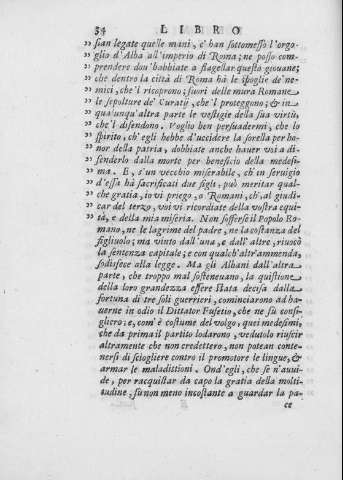 34 LIBRO
„ sian legate quelle mani, c'han sottomesso l'orgo-
„ glio d'Alba all'imperio di Roma; ne posso com-
„ prendere don'habbiate a flagellar questo giouane;
„ che dentro la città di Roma hà le spoglie de'ne-
„ mici, che'l ricoprono; fuori delle mura Romane
„ le sepolture de' Curatij, che'l proteggono; & in
„ qua'unqu'altra parte le vestigie della sua virtù,
„ che'l difendono. Voglio ben persuadermi, che lo
„ spirito, ch'egli hebbe d'uccidere la sorella per ho-
„ nor della patria, dobbiate anche hauer voi a di-
„ fenderlo dalla morte per beneficio della medesi-
„ ma. E, s'un vecchio miserabile, ch'in seruigio
„ d'essa hà sacrificati due figli, può meritar qualche
„ che gratia, io vi priego, o Romani, ch', al giudi-
„ car del terzo, voi vi ricordiate della vostra equi-
„ tà, e della mia miseria. Non sofferse il Popolo Ro-
mano, ne le lagrime del padre, ne la costanza del
figliuolo; ma vinto dall'una, e dall'altre, riuocò
la sentenza capitale; e con qualch'altr'ammenda,
sodisfece alla legge. Ma gli Albani dall'altra
parte, che troppo mal sosteneuano, la quistione
della loro grandezza essere stata decisa dalla
fortuna di tre soli guerrieri, cominciarono ad ha-
uerne in odio il Dittator Fufetio, che ne fù consi-
gliero; e, com'è costume del volgo, quei medesimi,
che da prima il partito lodarono, vedutolo riuscir
altramente che non credettero, non potean conte-
nersi di sciogliere contro il promotore le lingue, &
armar le maladittioni. Ond'egli, che se n'auui-
de, per racquistar da capo la gratia della molti-
tudine, fù non meno incostante a guardar la pa-
ce